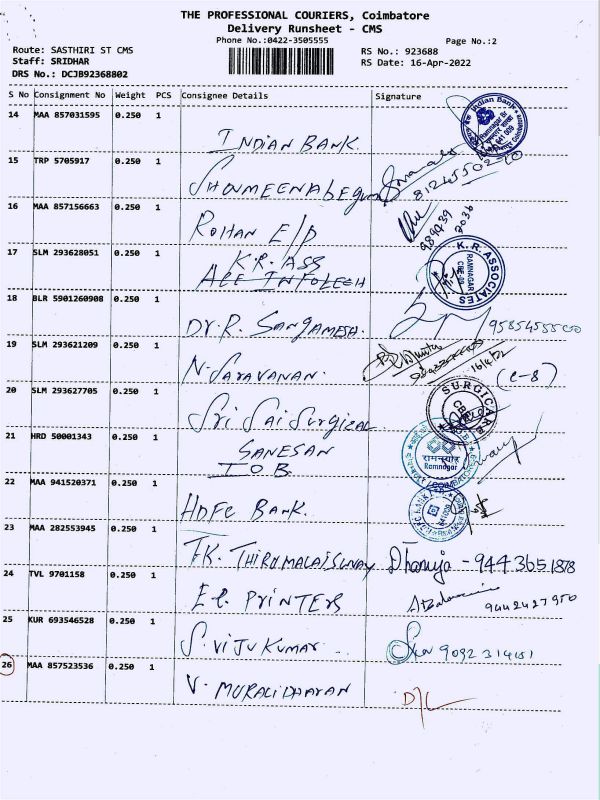 THE PROFESSIONAL COURIERS, Coimbatore
Delivery Runsheet - CMS
Phone No.:0422-3505555
Page No.:2
Route: SASTHIRI ST CMS
RS No.: 923688
Staff: SRIDHAR
RS Date: 16-Apr-2022
DRS No.: DCJB92368802
S No Consignment No Weight PCS Consignee Details Signature
14 MAA 857031595 0.250 1
INDIAN BANK
Indian Bank
15 TRP 5705917 0.250 1
Showmeenabegum
16 MAA 857156663 0.250 1
ROHAN E/P
989439
2036
17 SLM 293628051 0.250 1
K.R. ASS
K.R. ASSOCIATES
RAMNAGAR
18 BLR 5901260908 0.250 1
Dr. R. SANGAMESH.
19 SLM 293621209 0.250 1
N. SARAVANAN.
16/4/22
(C-8)
20 SLM 293627705 0.250 1
Sri Sai Surgizal
SURGICARE
21 HRD 50001343 0.250 1
IOB
रामनगर
Ramnagar
22 MAA 941520371 0.250 1
HDFC BANK.
23 MAA 282553945 0.250 1
T.K. THIRUMALAISWAY Dhanuja - 944 365 1878
24 TVL 9701158 0.250 1
PRINTERS
9442427950
25 KUR 693546528 0.250 1
S. VIJUKUMAR
9092314151
26 MAA 857523536 0.250 1
V. MURALIDHARAN
D/L